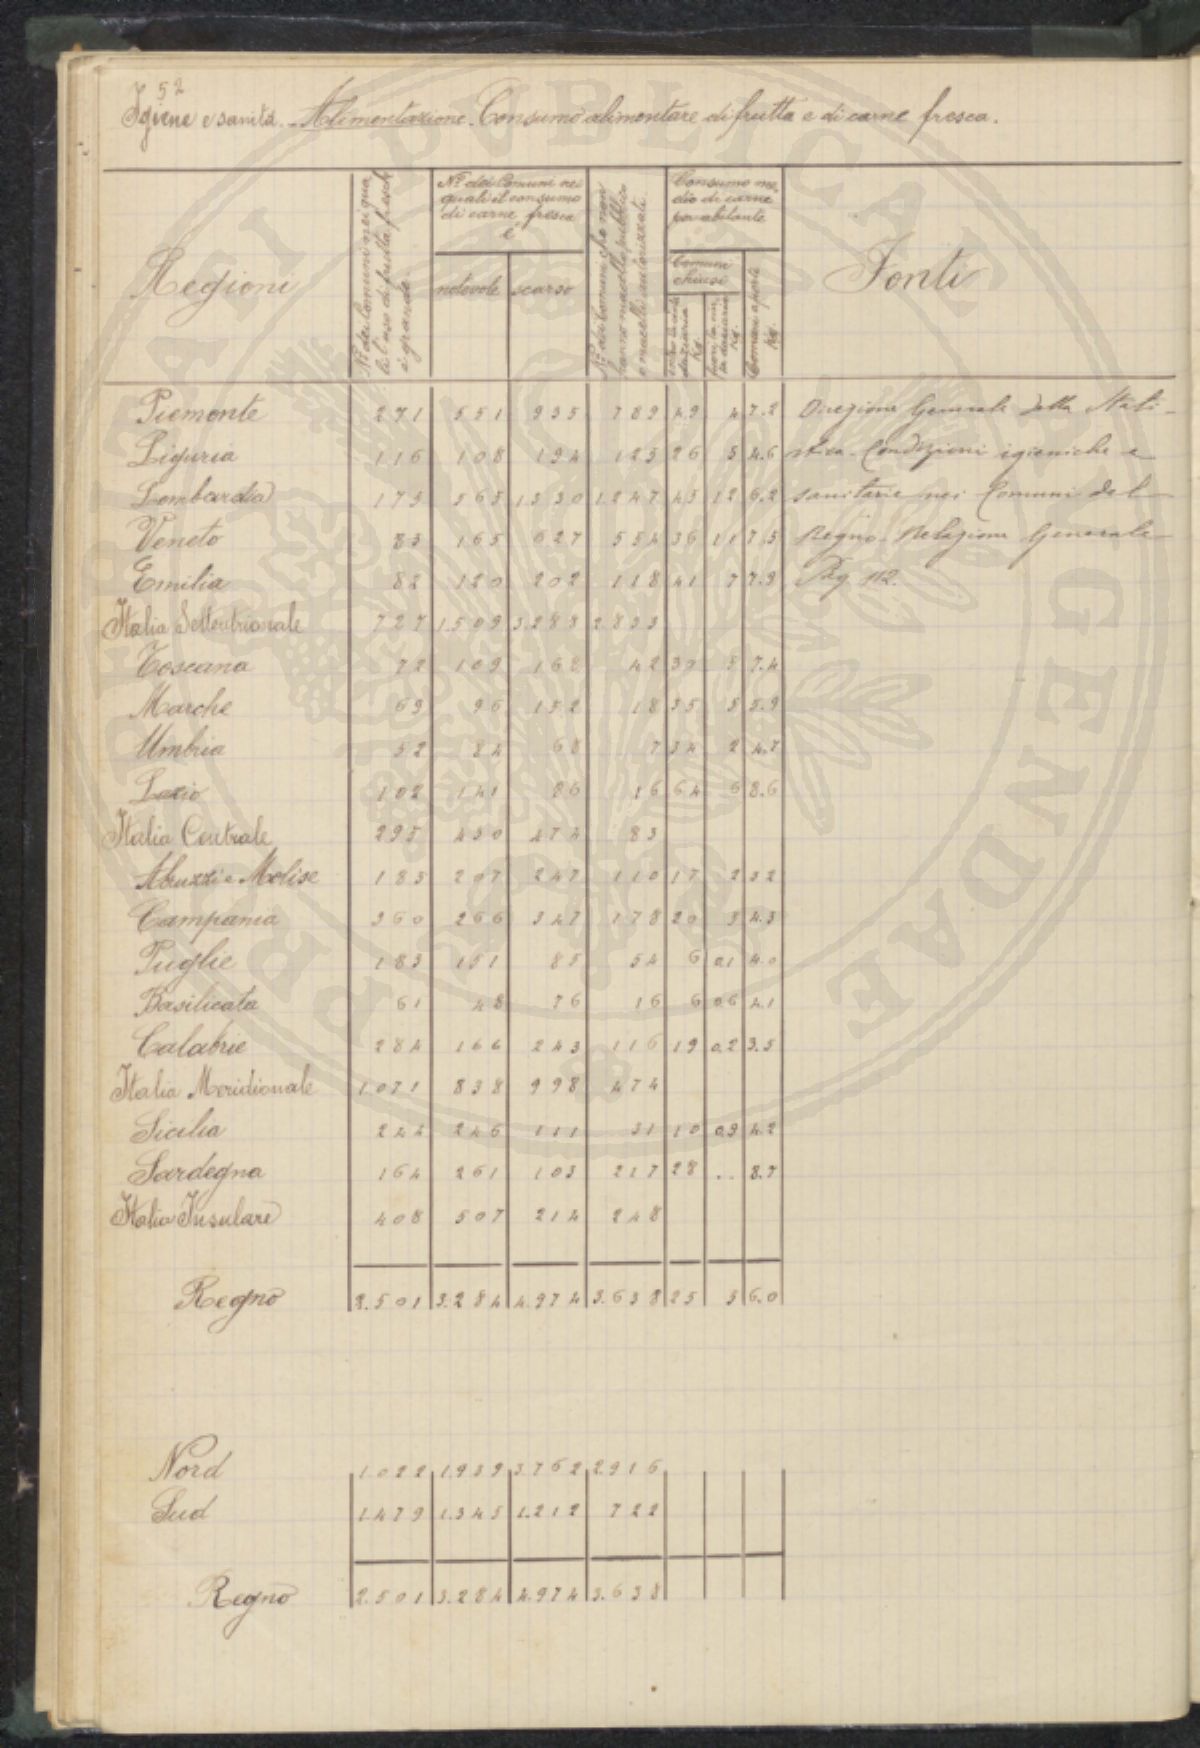 52
Igiene e sanità. Alimentazione. Consumo alimentare di frutta e di carne fresca.
Regioni
N.º dei Comuni nei qua
li l'uso di frutta fresche
è grande
N.º dei Comuni nei
quali il consumo
di carne fresca
è
notevole scarso
N.º dei Comuni che non
hanno macello pubblico
o macelli autorizzati
Consumo me
dio di carne
per abitante
Comuni
chiusi
entro la cinta
daziaria
Kg.
fuori la cin
ta daziaria
Kg.
Comuni aperti
Kg.
Fonti
Piemonte 271 551 935 789 49 4 7.2 Direzione Generale della Stati-
Liguria 116 108 194 125 26 5 4.6 stica. Condizioni igieniche e
Lombardia 175 565 1330 1.247 45 12 6.2 sanitarie nei Comuni del
Veneto 83 165 627 554 36 11 7.5 Regno. Relazione Generale
Emilia 82 120 202 118 41 7 7.9 Pag. 112.
Italia Settentrionale 727 1.509 3.288 2.833
Toscana 72 109 168 42 39 8 7.4
Marche 69 96 152 18 35 5 5.9
Umbria 52 84 68 7 34 2 4.7
Lazio 102 141 86 16 64 6 8.6
Italia Centrale 295 430 474 83
Abruzzi e Molise 183 207 247 110 17 2 3.2
Campania 360 266 347 178 20 3 4.3
Puglie 183 151 85 54 6 0.1 4.0
Basilicata 61 48 76 16 6 0.6 4.1
Calabrie 284 166 243 116 19 0.2 3.5
Italia Meridionale 1.071 838 998 474
Sicilia 244 246 111 31 10 0.9 4.2
Sardegna 164 261 103 217 28 .. 8.7
Italia Insulare 408 507 214 248
Regno 2.501 3.284 4.974 3.638 25 5 6.0
Nord 1.022 1.939 3.762 2.916
Sud 1.479 1.345 1.212 722
Regno 2.501 3.284 4.974 3.638